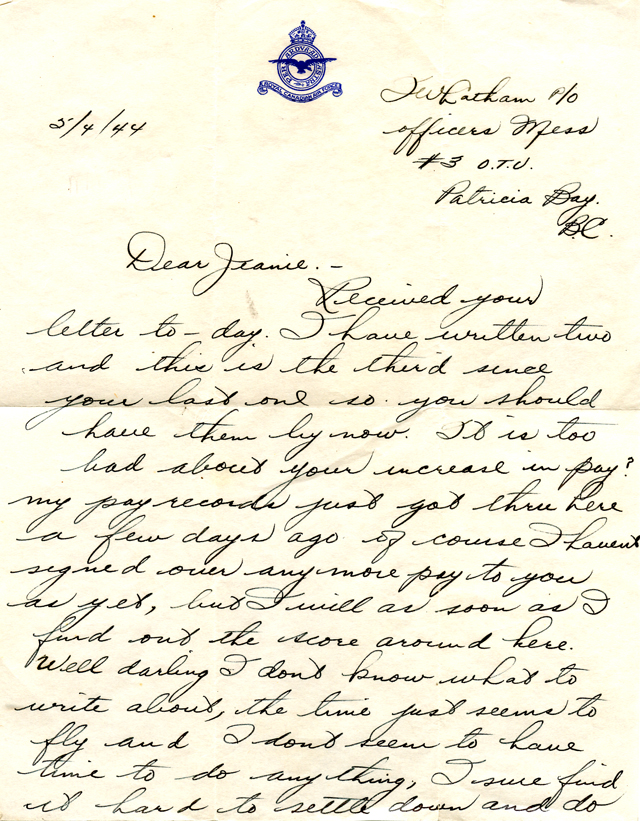 PER ARDUA AD ASTRA
ROYAL CANADIAN AIR FORCE
5/4/44
Latham P/O
officers Mess
#3 O.T.U.
Patricia Bay.
B.C.
Dear Jeanie. -
Received your
letter to-day. I have written two
and this is the third since
your last one so you should
have them by now. It is too
bad about your increase in pay?
my pay records just got thru here
a few days ago of course I havent
signed over any more pay to you
as yet, but I will as soon as I
find out the score around here.
Well darling I dont know what to
write about, the time just seems to
fly and I dont seem to have
time to do any thing, I sure find
it hard to settle down and do